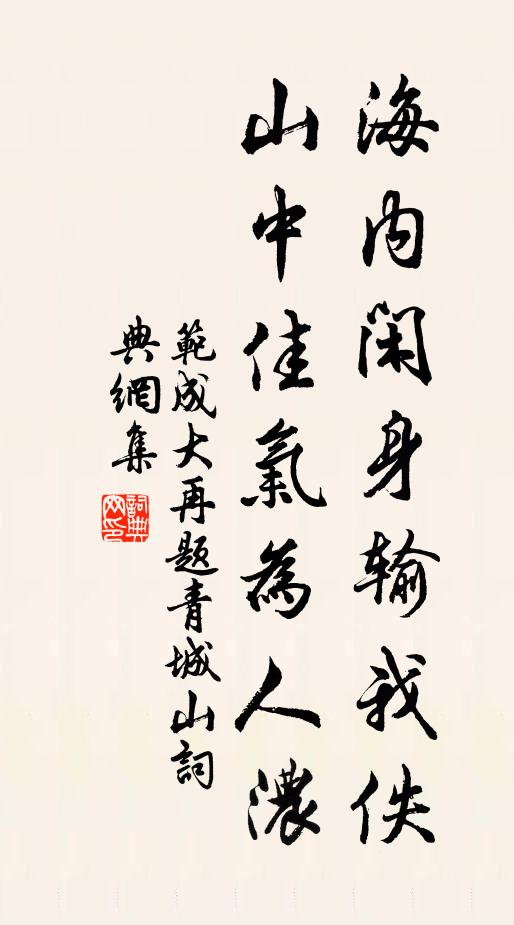 海內閑身輸我佚
山中佳氣為人濃
範成大再題青城山詞
典網集
詞典网印